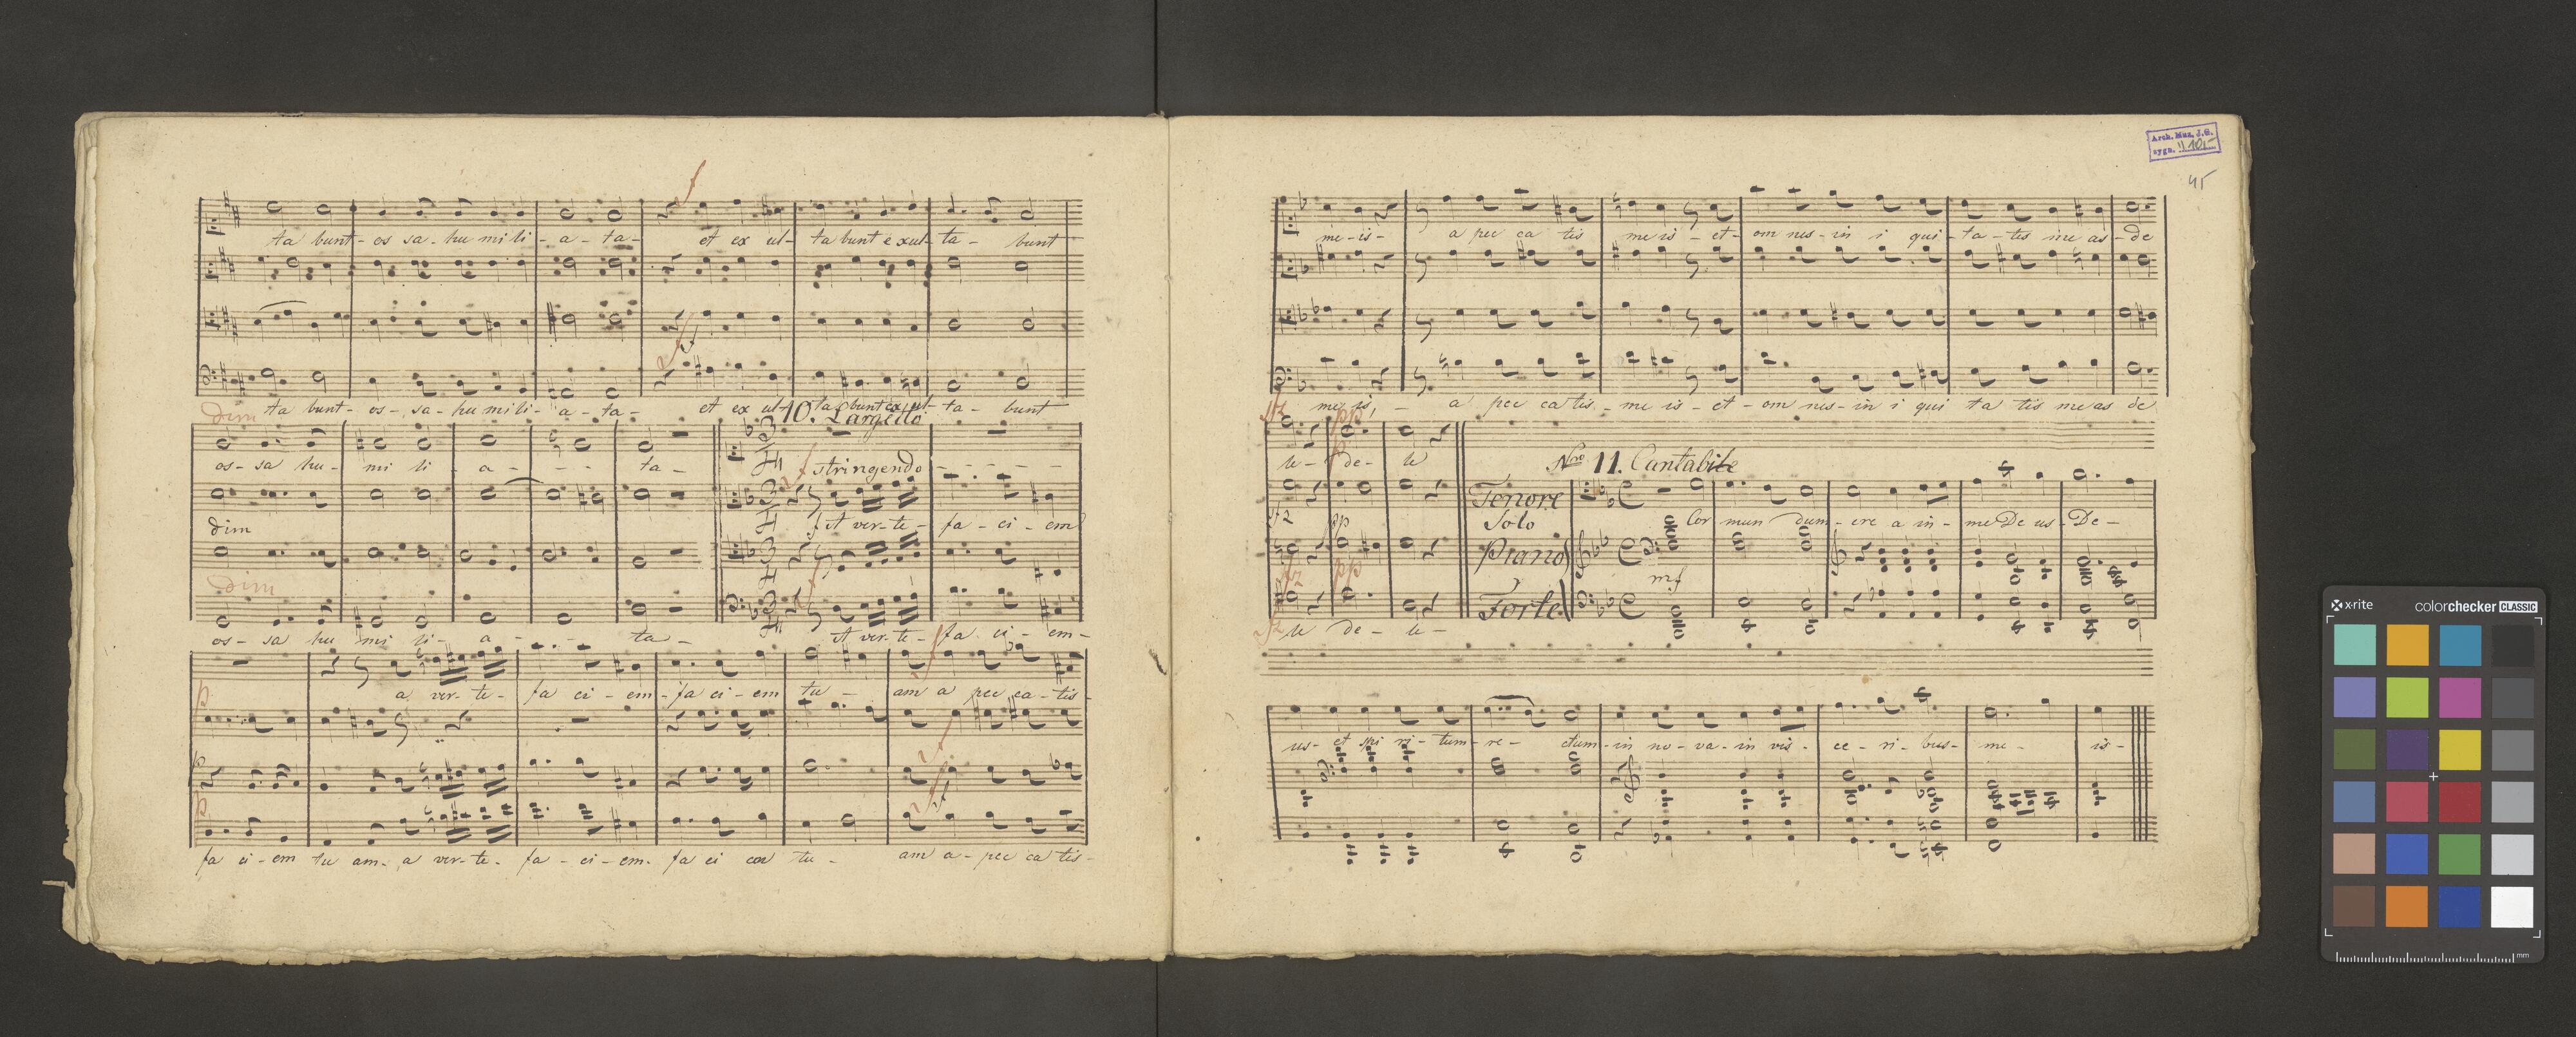 f
ta bunt - os sa - hu mi li - a - ta - et ex ul - ta bunt exul - ta - bunt
f
f
dim ta bunt - os - sa - hu mi li - a - ta - et ex ul - ta bunt ex ul - ta - bunt
10. Larghetto
os - sa hu - mi li - a - - - ta -
f stringendo - - - - - -
dim
A ver - te - fa - ci - em
dim
f
os - sa hu mi li - a - - - ta - A ver - te - fa ci - em -
f
p
a ver - te - fa ci - em - fa ci - em tu - am a pec ca - tis -
f
p
f
p
fa ci - em tu am - a ver - te - fa - ci - em - fa ci em tu - am a - pec ca tis -
Arch. Muz. J.G.
sygn. II 101
45
me - is - a pec ca tis me is - et - om nes - in i qui - ta - tis me as - de
me is, - a pec ca tis - me is - et - om nes - in i qui ta tis me as de
fz pp
p
le - de - le
Nro 11. Cantabile
fz pp
Tenore
Solo
Cor mun dum - cre a in - me De us - De -
Piano
fz pp
mf
Forte
fz le de - le -
us - et spi ri - tum - re - ctum - in no - va - in vis - ce - ri - bus - me - is -
x-rite colorchecker CLASSIC
mm